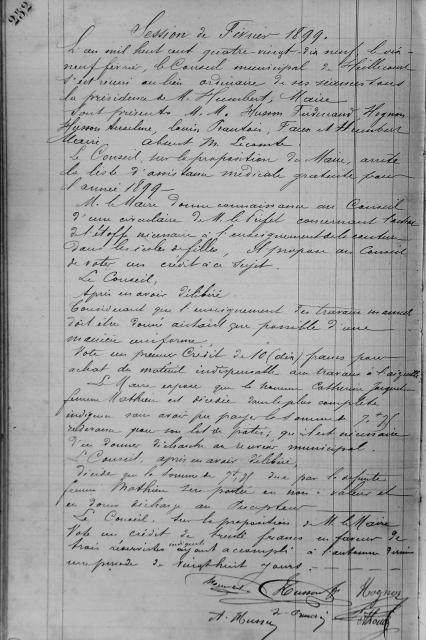 252
Session de Février 1899.
L'an mil huit cent quatre-vingt-dix neuf, le dix-
neuf février, le Conseil municipal de Heillecourt
s'est réuni au lieu ordinaire de ses séances sous
la présidence de M. Humbert, Maire
Sont présents M. M. Husson Ferdinand, Hognon
Husson Louis et Humbert
Maire Absent M. Lecomte.
Le Conseil, sur la proposition du Maire, arrête
la liste d'assistance médicale gratuite pour
l'année 1899
M. le Maire donne connaissance au Conseil
d'une circulaire de M. le Préfet concernant l'achat
de l'étoffe nécessaire à l'enseignement de la couture
dans les écoles de filles, et propose au Conseil
de voter un crédit à ce sujet.
Le Conseil,
Après en avoir délibéré
Considérant que l'enseignement des travaux manuels
doit être donné autant que possible d'une
manière uniforme
Vote un premier Crédit de 10 (dix) francs pour
achat du matériel indispensable aux travaux à l'aiguille
Le Maire expose que la nommée Catherine
femme Mathieu est décédée dans la plus complète
indigence sans avoir pu payer la somme de
redevance pour un lot de ; qu'il est nécessaire
d'en donner décharge au receveur municipal.
Le Conseil, après en avoir délibéré,
décide que la somme de due par la défunte
femme Mathieu sera portée en non-valeur et
en donne décharge au Percepteur
Le Conseil, sur la proposition de M. le Maire
Vote un crédit de trente francs en faveur de
trois réservistes indigents ayant accompli à l'automne dernier
une période de vingt huit jours.
Husson F Hognon
A. Husson